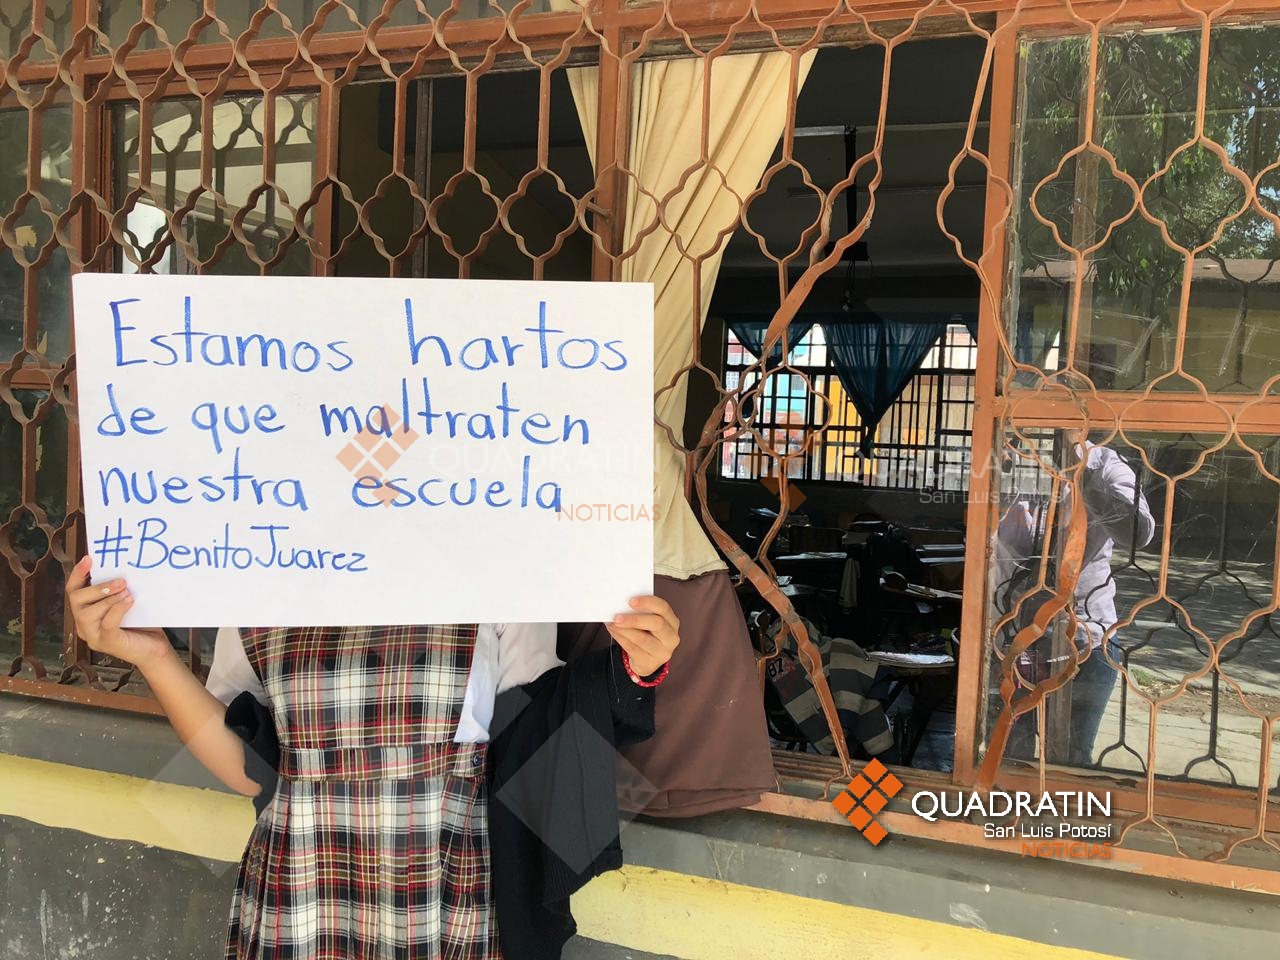 Estamos hartos
de que maltraten
nuestra escuela
#BenitoJuarez
QUADRATIN
NOTICIAS
QUADRATIN
San Luis Potosí
87
QUADRATIN
San Luis Potosí
NOTICIAS